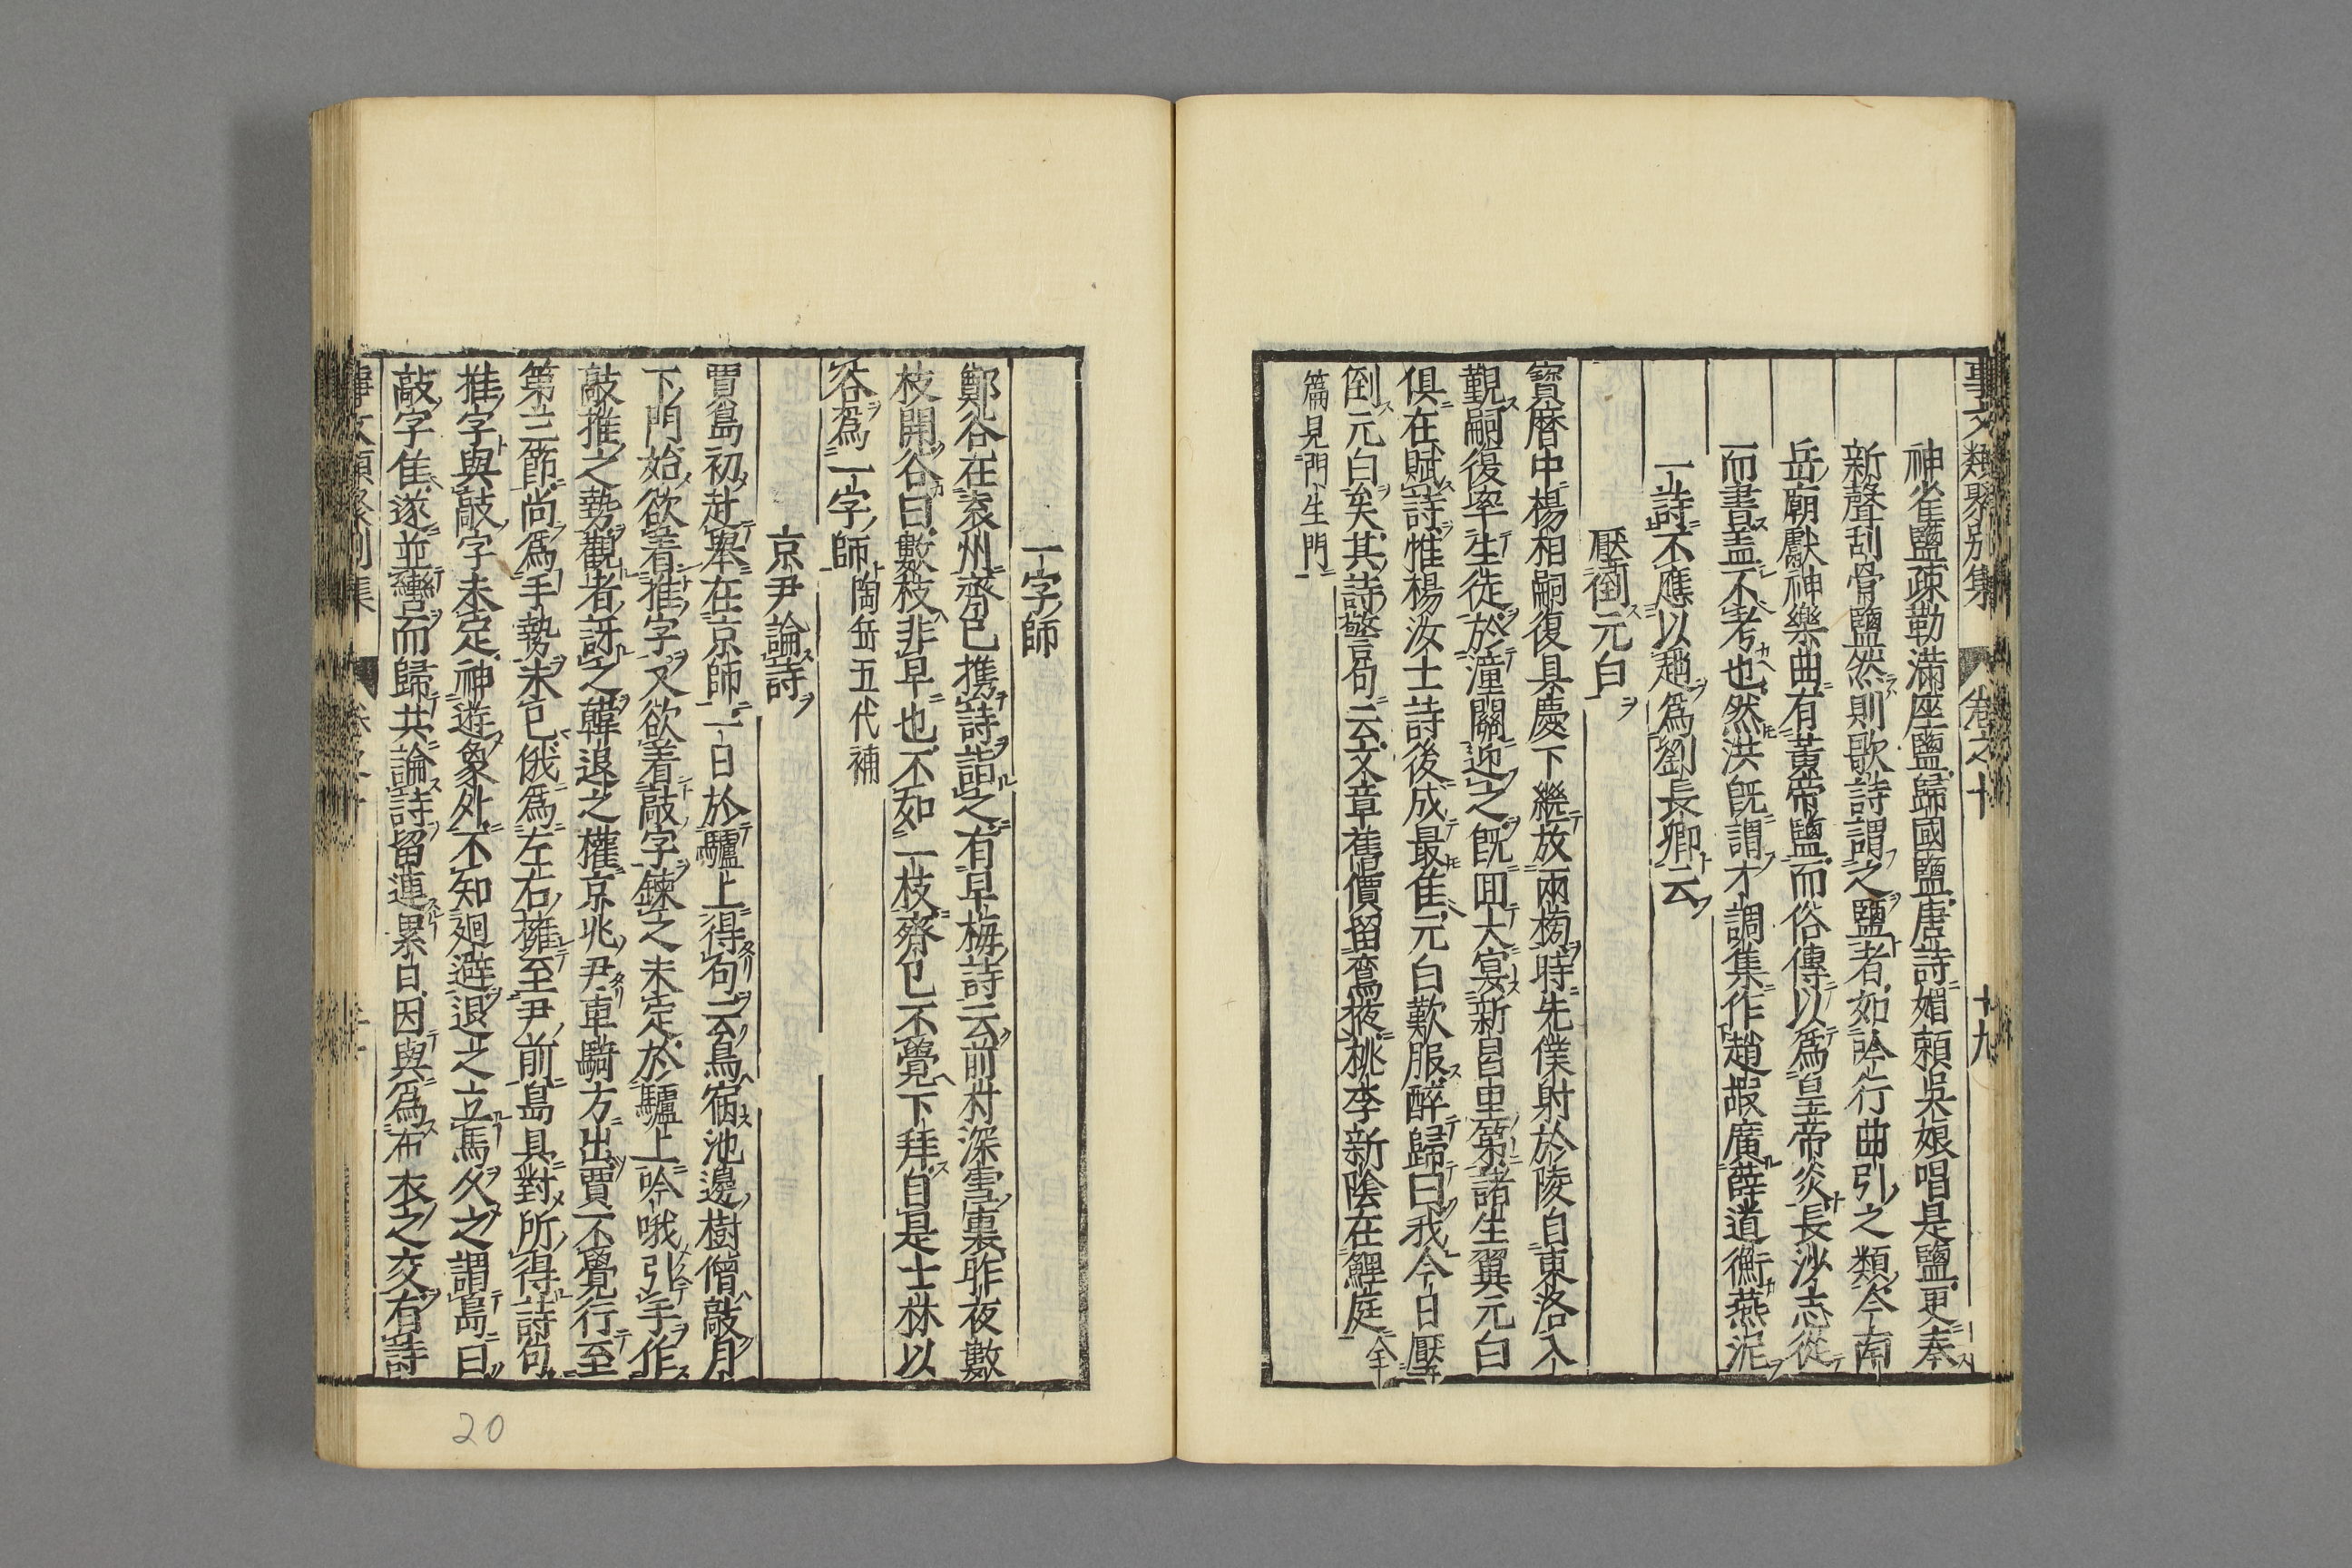 事文類聚別集 卷之十 十九
神雀鹽疎勒滿座鹽歸國鹽唐詩媚頼吳娘唱是鹽更奏
新聲刮骨鹽然則歌詩謂之鹽者如吟行曲引之類今南
岳廟獻神樂曲有黃帝鹽而俗傳以爲皇帝炎長沙志從
而書盖不考也然洪既謂才調集作趙嘏廣薛道衡燕泥
一詩不應以趙爲劉長卿云
壓倒元白
寶曆中楊相嗣復具慶下繼放兩榜時先僕射於陵自東洛入
覲嗣復率生徒於潼關迎之既囬大宴新昌里第諸生翼元白
俱在賦詩惟楊汝士詩後成最隹元白歎服醉歸曰我今日壓
倒元白矣其詩警句云文章舊價留鸞掖桃李新陰在鯉庭全
篇見門生門
一字師
鄭谷在袁州齊已携詩詣之有早梅詩云前村深雪裏昨夜數
枝開谷曰數枝非早也不如一枝齊已不覺下拜自是士林以
谷爲一字師陶岳五代補
京尹論詩
賈島初赴舉在京師一日於驢上得句云鳥宿池邊樹僧敲月
下門始欲着推字又欲着敲字鍊之未定於驢上吟哦引手作
敲推之勢觀者訝之韓退之權京兆尹車騎方出賈不覺行至
第三節尚爲手勢未已俄爲左右擁至尹前島具對所得詩句
推字與敲字未定神遊象外不知廻避退之立馬久之謂島曰
敲字隹遂並轡而歸共論詩留連累日因與爲布衣之交有詩
20